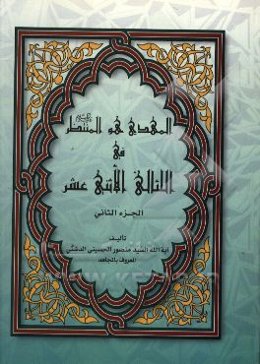 المهدي هو المنتظر
في
اللئالئ الأثنى عشر
الجزء الثاني
تأليف
آية الله السيد منصور الحسيني
المعروف بالمجاهد